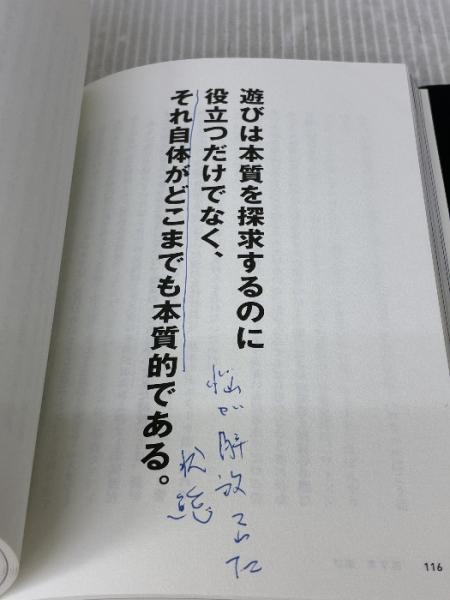 遊びは本質を探求するのに
役立つだけでなく、
それ自体がどこまでも本質的である。
脳が解放された
状態
116